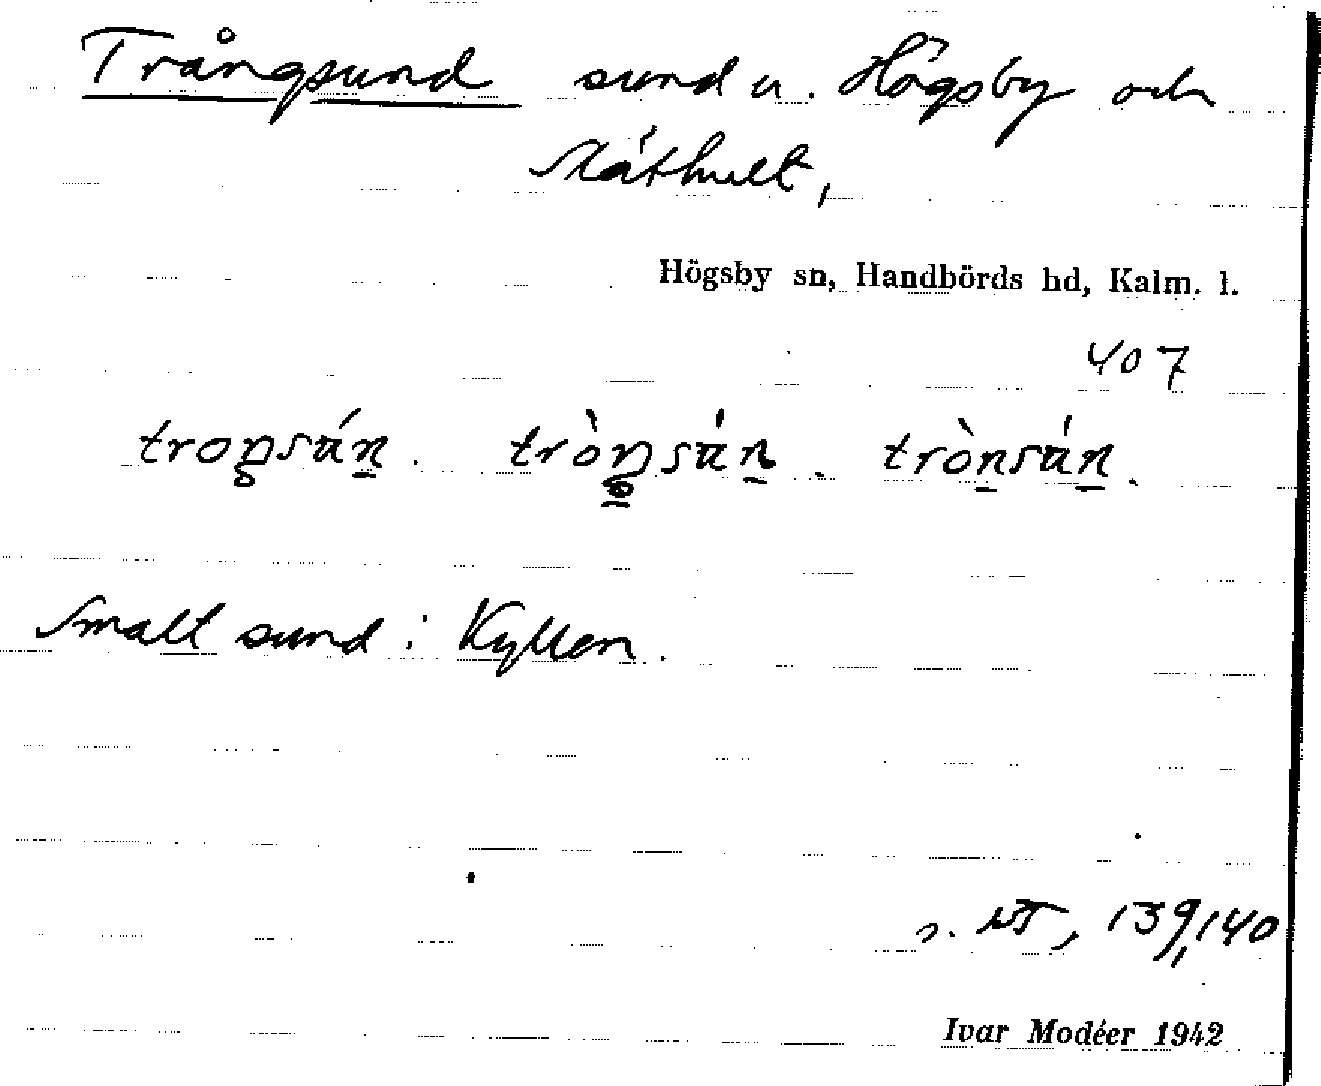 Trångsund sund u. Högsby och
Råthult,
Högsby sn, Handbörds hd, Kalm. l.
407
troŋsún. tròŋsún. trònsún.
Smalt sund i Kyllen.
s. NT, 139, 140
Ivar Modéer 1942